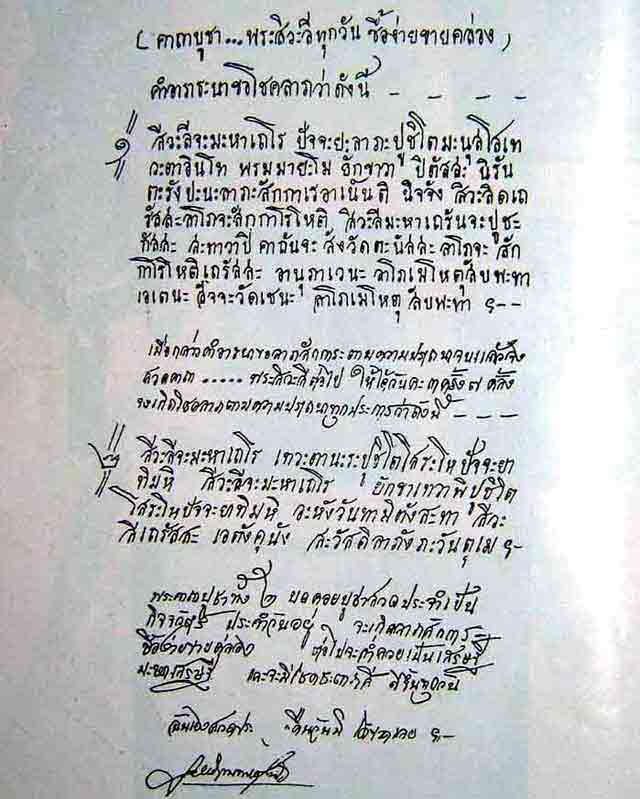 (คาถาบูชา...พระสิวะลีทุกวัน ซื้อง่ายขายคล่อง)
คำอาราธนาขอโชคลาภว่าดังนี้ - - - -
๑ สีวะลีจะมะหาเถโร ปัจจะยะลาภะปูชิโตมะนุสโสเท
วะตาอินโท พรมมายะโม ยักขาวา ปิตัสสะ นิรัน
ตะรังปะนะลาภะสักกาเรอาเน็นติ นิจจัง สีวะลิดเถ
รัสสะลาโภจะสักกาโรโหติ สีวะลีมะหาเถรันจะปูชะ
กัสสะ สะทาวาปิ คาถันจะ สังวัดตะนัสสะ ลาโภจะ สัก
กาโรโหติเถรัสสะ อานุภาเวนะ ลาโภเมโหตุสับพะทา
เอเตนะ สัจจะวัดเชนะ ลาโภเมโหตุ สับพะทา ๚--
เมื่อกล่าวคำอาราธนาขอลาภสักการะตามความปรารถนาจบแล้วจึง
สวดคาถา ..... พระสิวะลีต่อไป ให้ได้วันละ ๓ ครั้ง ๗ ครั้ง
จะเกิดโชคลาภตามความปรารถนาทุกประการว่าดังนี้ - - - -
๒ สีวะลีจะมะหาเถโร เทวะตานะระปูชิโตโสระโหปัจจะยา
ทิมหิ สีวะลีจะมะหาเถโร ยักขาเทวาพิปูชิโต
โสระโหปัจจะยาทิมหิ อะหังวันทามิตังสะทา สีวะ
ลีเถรัสสะ เอตังคุนัง สะวัสดิลาภังภะวันตุเม ๚-
พระคาถาบูชาทั้ง ๒ บทคอยบูชาสวดประจำเป็น
กิจวัตร ประจำวันอยู่ จะเกิดลาภสักการะ
ซื้อง่ายขายคล่อง ต่อไปจะร่ำรวยเป็นเศรษฐี
มหาเศรษฐี และจะมีโชคชะตาราศี ดีขึ้นทุกวัน